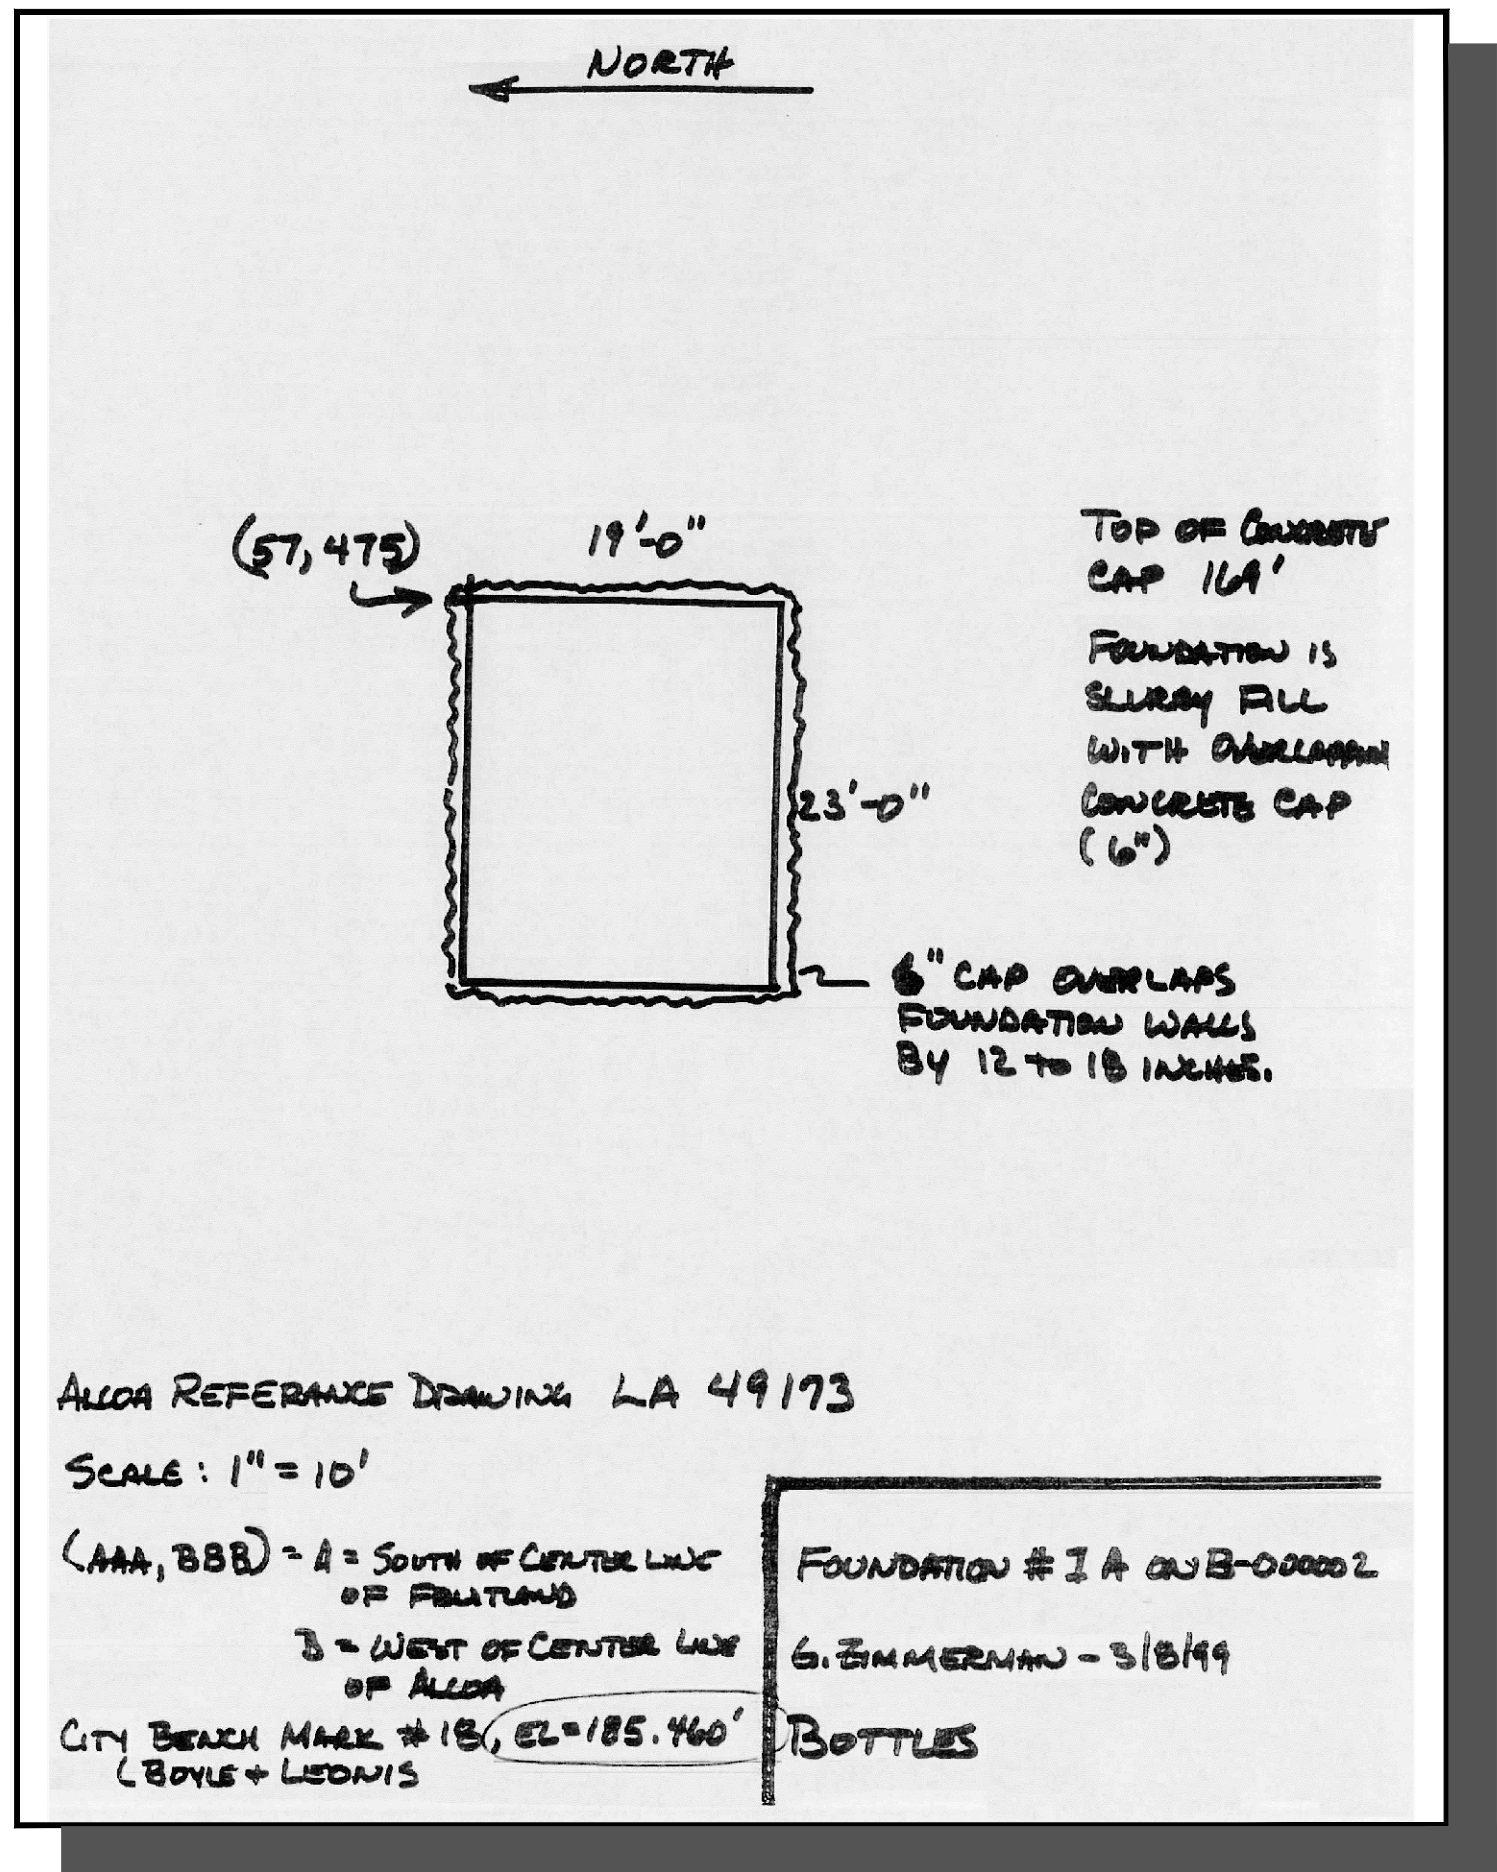 NORTH
(57, 475)
19'-0"
TOP OF CONCRETE
CAP 169'
FOUNDATION IS
SLURRY FILL
WITH OVERLAPPIN
CONCRETE CAP
(6")
23'-0"
6" CAP OVERLAPS
FOUNDATION WALLS
BY 12 TO 18 INCHES.
ALCOA REFERANCE DRAWING LA 49173
SCALE: 1" = 10'
(AAA, BBB) = A = SOUTH OF CENTER LINE
OF FRUITLAND
B = WEST OF CENTER LINE
OF ALCOA
CITY BENCH MARK # 18, EL=185.460'
(BOYLE + LEONIS
FOUNDATION # 1 A ON B-000002
G. ZIMMERMAN - 3/8/99
BOTTLES